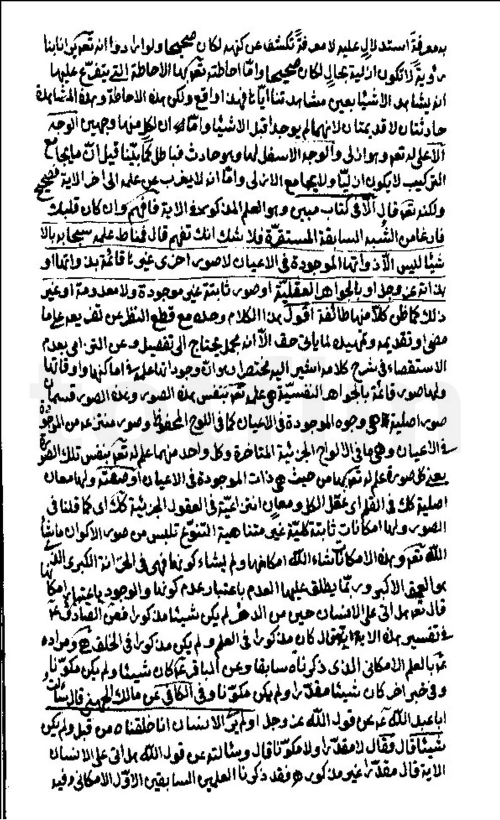 به معرفة استدلال عليه لا معرفة تكشف عن كنهه لكان صحيحا ولو ارادوا انه تعالى يرانا بنا
رؤية لا تكون ازلية بحال لكان صحيحا واما احاطته تعالى بها الاحاطة التي يتفرع عليها
انه يشاهد الاشياء بعين مشاهدتنا اياها فهذا واقع ولكن هذه الاحاطة وهذه المشاهدة
حادثتان لا قديمتان لانهما لم يوجدا قبل الاشياء واما ان لكل منها وجهين الوجه
الاعلى له تعالى وهو ازلي والوجه الاسفل لها وهو حادث فباطل كما بينا قبل ان ما يجامع
التركيب لا يكون ازليا ولا يجامع الازلي واما انه لا يعزب عن علمه الى اخر الاية فصحيح
ولكنه تعالى قال الا في كتاب مبين وهو العلم المذكور في هذه الاية فافهم وان كان قلبك
فارغا من الشبه السابقة المستقرة فلا شك انك تفهم قال فمناط علمه سبحانه بالا
شياء ليس الا ذواتها الموجودة في الاعيان لا صور اخرى غيرها قائمة بذواتها او
بذاته عز وجل او بالجواهر العقلية او صور ثابتة غير موجودة ولا معدومة او غير
ذلك كما ظن كلا منها طائفة اقول هذا الكلام وحده مع قطع النظر عن تفريعه على ما
مضى وتقديمه وتمهيده لما ياتي حق الا انه مجمل يحتاج الى تفصيل وعن التزامي بعدم
الاستقصاء في شرح كلامه اشير اليه مختصرا وهو ان وجوداتها علمية في اماكنها واوقاتها
ولها صور قائمة بالجواهر النفسية هي علمه تعالى بنفس هذه الصور وهذه الصور قسمان
صور اصلية هي وجوه الموجودة في الاعيان كما في اللوح المحفوظ وصور منتزعة من الموجودة
في الاعيان وهي ما في الالواح الجزئية المتاخرة وكل واحد منهما علم له تعالى بنفس تلك الصورة
يعني كل صورة علم له تعالى بها من حيث هي ذات الموجودة في الاعيان او صفته ولها معان
اصلية كلية في القلم اي عقل الكل ومعان انتزاعية في العقول الجزئية كذلك اي كما قلنا في
الصور ولها امكانات ثابتة كلية غير متناهية التنوع تلبس من صور الاكوان ما يشاء
الله تعالى وهذه الامكانات شاء الله امكانها ولم يشاء كونها فهي في الخزانة الكبرى التي هي
العمق الاكبر وربما يطلق عليها العدم باعتبار عدم كونها والوجود باعتبار امكانها
قال تعالى هل اتى على الانسان حين من الدهر لم يكن شيئا مذكورا فعن الصادق ع
في تفسير هذه الاية قال كان مذكورا في العلم ولم يكن مذكورا في الخلق ومراده
ع بالعلم الامكاني الذي ذكرناه سابقا وعن الباقر ع كان شيئا ولم يكن مكونا
وفي خبر اخر كان شيئا مقدرا ولم يكن مكونا وفي الكافي عن مالك الجهني قال سألت
ابا عبد الله ع عن قول الله عز وجل اولم ير الانسان انا خلقناه من قبل ولم يكن
شيئا قال فقال لا مقدرا ولا مكونا قال وسألته عن قول الله هل اتى على الانسان
الاية قال مقدرا غير مذكور فقد ذكرنا العلمين السابقين الاول الامكاني وفيه